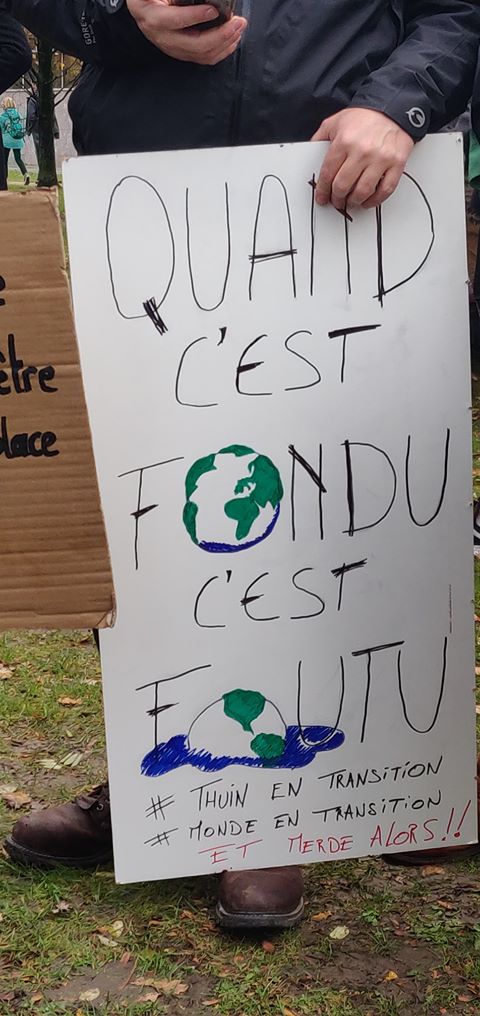 QUAND
C'EST
FONDU
C'EST
FOUTU
# THUIN EN TRANSITION
# MONDE EN TRANSITION
ET MERDE ALORS!!
être
place
GORE